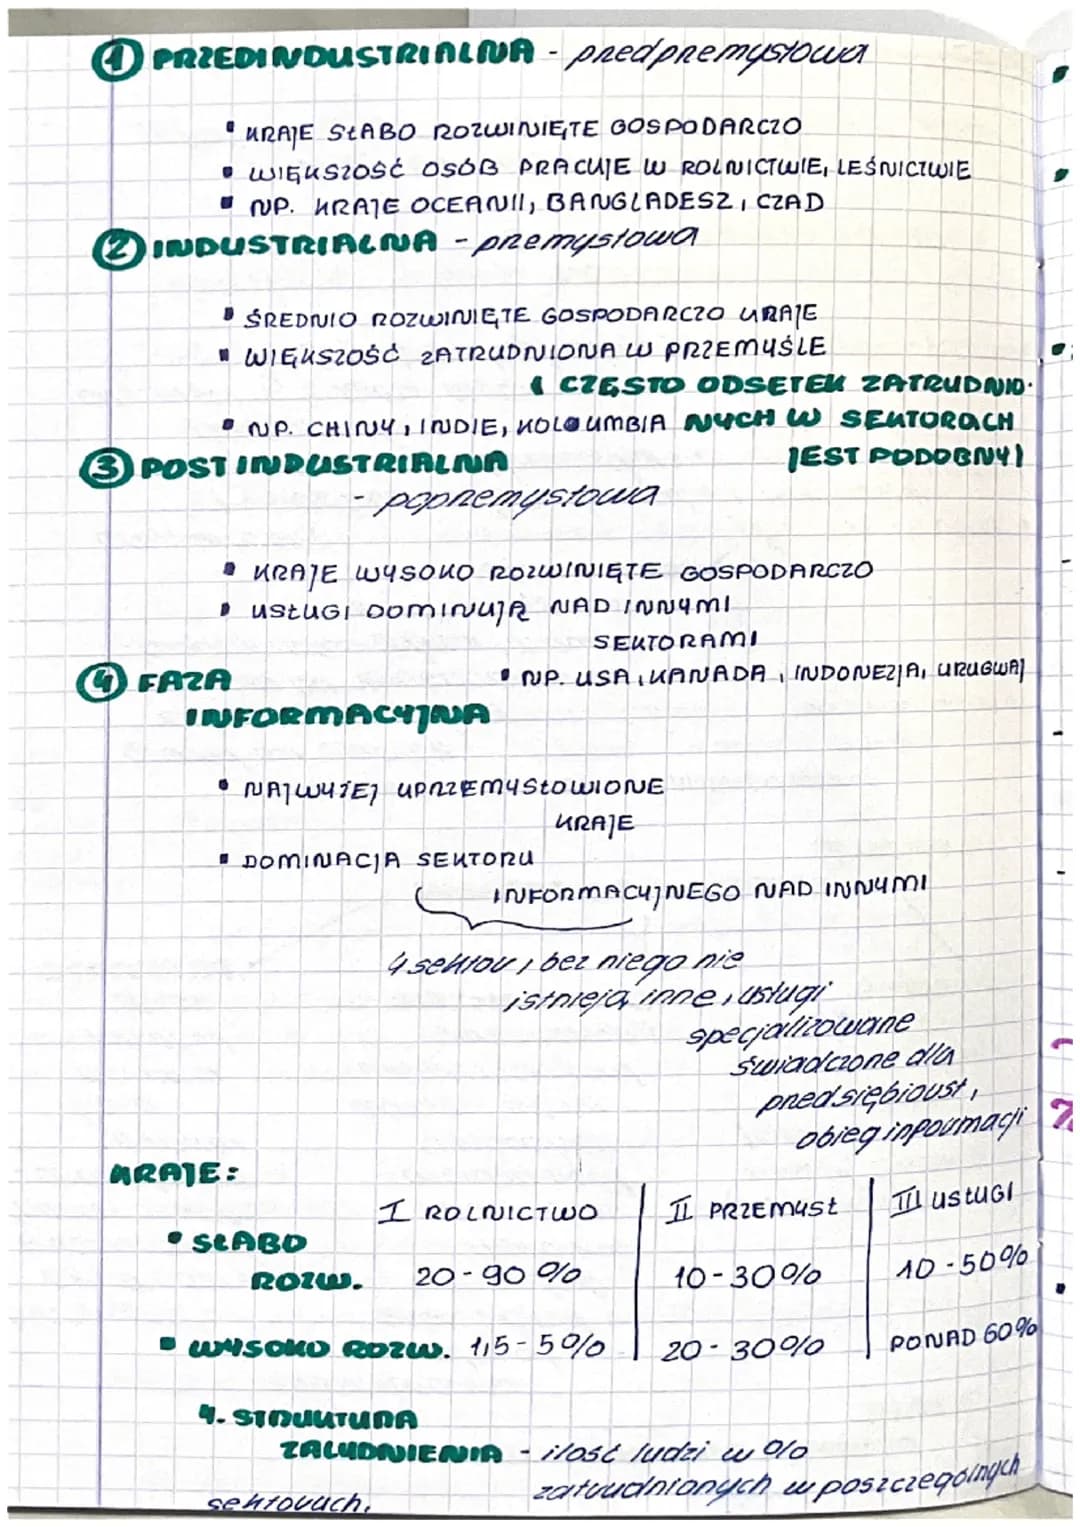 1 PRZEDINDUSTRIALNA - przedprzemysłowa
▪ KRAJE SŁABO ROZWINIĘTE GOSPODARCZO
▪ WIĘKSZOŚĆ OSÓB PRACUJE W ROLNICTWIE, LEŚNICTWIE
▪ NP. KRAJE OCEANII, BANGLADESZ, CZAD
2 INDUSTRIALNA - przemysłowa
▪ ŚREDNIO ROZWINIĘTE GOSPODARCZO KRAJE
▪ WIĘKSZOŚĆ ZATRUDNIONA W PRZEMYŚLE
( CZĘSTO ODSETEK ZATRUDNIO-
▪ NP. CHINY, INDIE, KOLUMBIA NYCH W SEKTORACH
3 POSTINDUSTRIALNA JEST PODOBNY)
- poprzemysłowa
▪ KRAJE WYSOKO ROZWINIĘTE GOSPODARCZO
▪ USŁUGI DOMINUJĄ NAD INNYMI
SEKTORAMI
4 FAZA ▪ NP. USA, KANADA, INDONEZJA, URUGWAJ
INFORMACYJNA
▪ NAJWYŻEJ UPRZEMYSŁOWIONE
KRAJE
▪ DOMINACJA SEKTORU
INFORMACYJNEGO NAD INNYMI
4 sektor, bez niego nie
istnieją inne, usługi
specjalizowane
świadczone dla
przedsiębiorst,
obieg informacji
KRAJE:
I ROLNICTWO | II PRZEMYSŁ | III USŁUGI
▪ SŁABO
ROZW. 20-90% 10-30% 10-50%
▪ WYSOKO ROZW. 1,5-5% 20-30% PONAD 60%
4. STRUKTURA
ZALUDNIENIA - ilość ludzi w %
zatrudnionych w poszczególnych
sektorach.